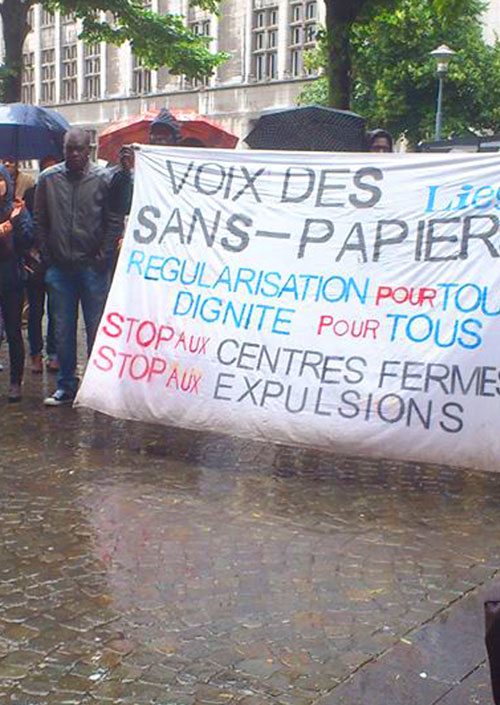 VOIX DES Lie
SANS-PAPIER
REGULARISATION POUR TOU
DIGNITE POUR TOUS
STOP AUX CENTRES FERMES
STOP AUX EXPULSIONS